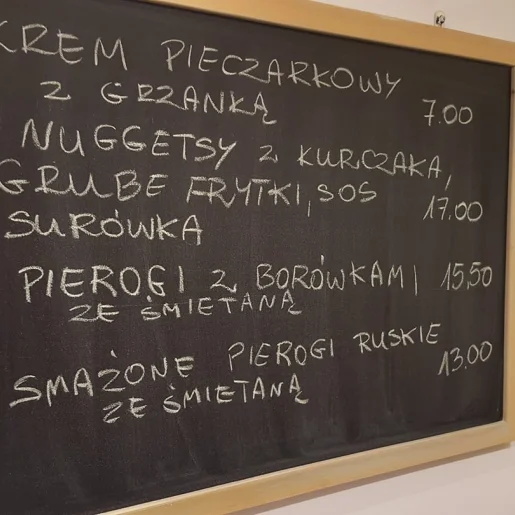 KREM PIECZARKOWY
Z GRZANKĄ 7.00
NUGGETSY Z KURCZAKA,
GRUBE FRYTKI, SOS
SURÓWKA 17.00
PIEROGI Z BORÓWKAMI 15,50
ZE ŚMIETANĄ
SMAŻONE PIEROGI RUSKIE 13.00
ZE ŚMIETANĄ